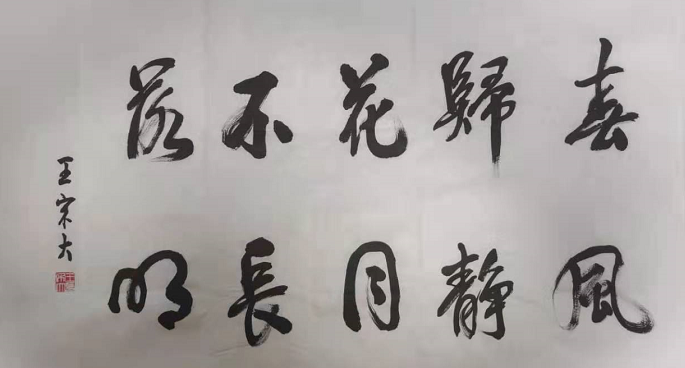 春歸花不落
風静月長明
王宋大